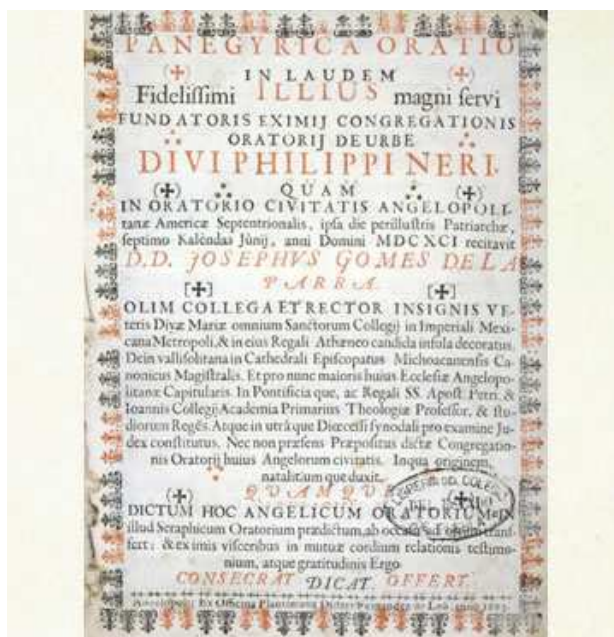 PANEGYRICA ORATIO
IN LAUDEM
Fidelissimi ILLIUS magni servi
FUNDATORIS EXIMIJ CONGREGATIONIS
ORATORIJ DE URBE
DIVI PHILIPPI NERI.
QUAM
IN ORATORIO CIVITATIS ANGELOPOLI-
tanæ Americæ Septentrionalis, ipsa die perillustris Patriarchæ,
septimo Kalendas Junij, anni Domini MDCXCI recitavit
D.D. JOSEPHVS GOMES DE LA
PARRA.
OLIM COLLEGA ET RECTOR INSIGNIS VE-
teris Divæ Mariæ omnium Sanctorum Collegij in Imperiali Mexi-
cana Metropoli, & in eius Regali Athæneo candida infula decoratus.
Dein vallisolitana in Cathedrali Episcopatus Michoacanensis Ca-
nonicus Magistralis. Et pro nunc maioris huius Ecclesiæ Angelopo-
litanæ Capitularis. In Pontificia que, ac Regali SS. Apost. Petri, &
Ioannis Collegij Academia Primarius Theologiæ Professor, & stu-
diorum Regēs. Atque in utrâque Diœcesi synodali pro examine Ju-
dex constitutus. Nec non præsens Præpositus dictæ Congregatio-
nis Oratorij huius Angelorum civitatis. In qua originem,
natalitium que duxit.
QUAMQUE
DICTUM HOC ANGELICUM ORATORIUM IN
illud Seraphicum Oratorium prædictum, ab occasu ad ortum trans-
fert: & ex imis visceribus in mutuæ cordium relationis testimo-
nium, atque gratitudinis Ergo
CONSECRAT DICAT OFFERT.
Ex Officina Plantiniana